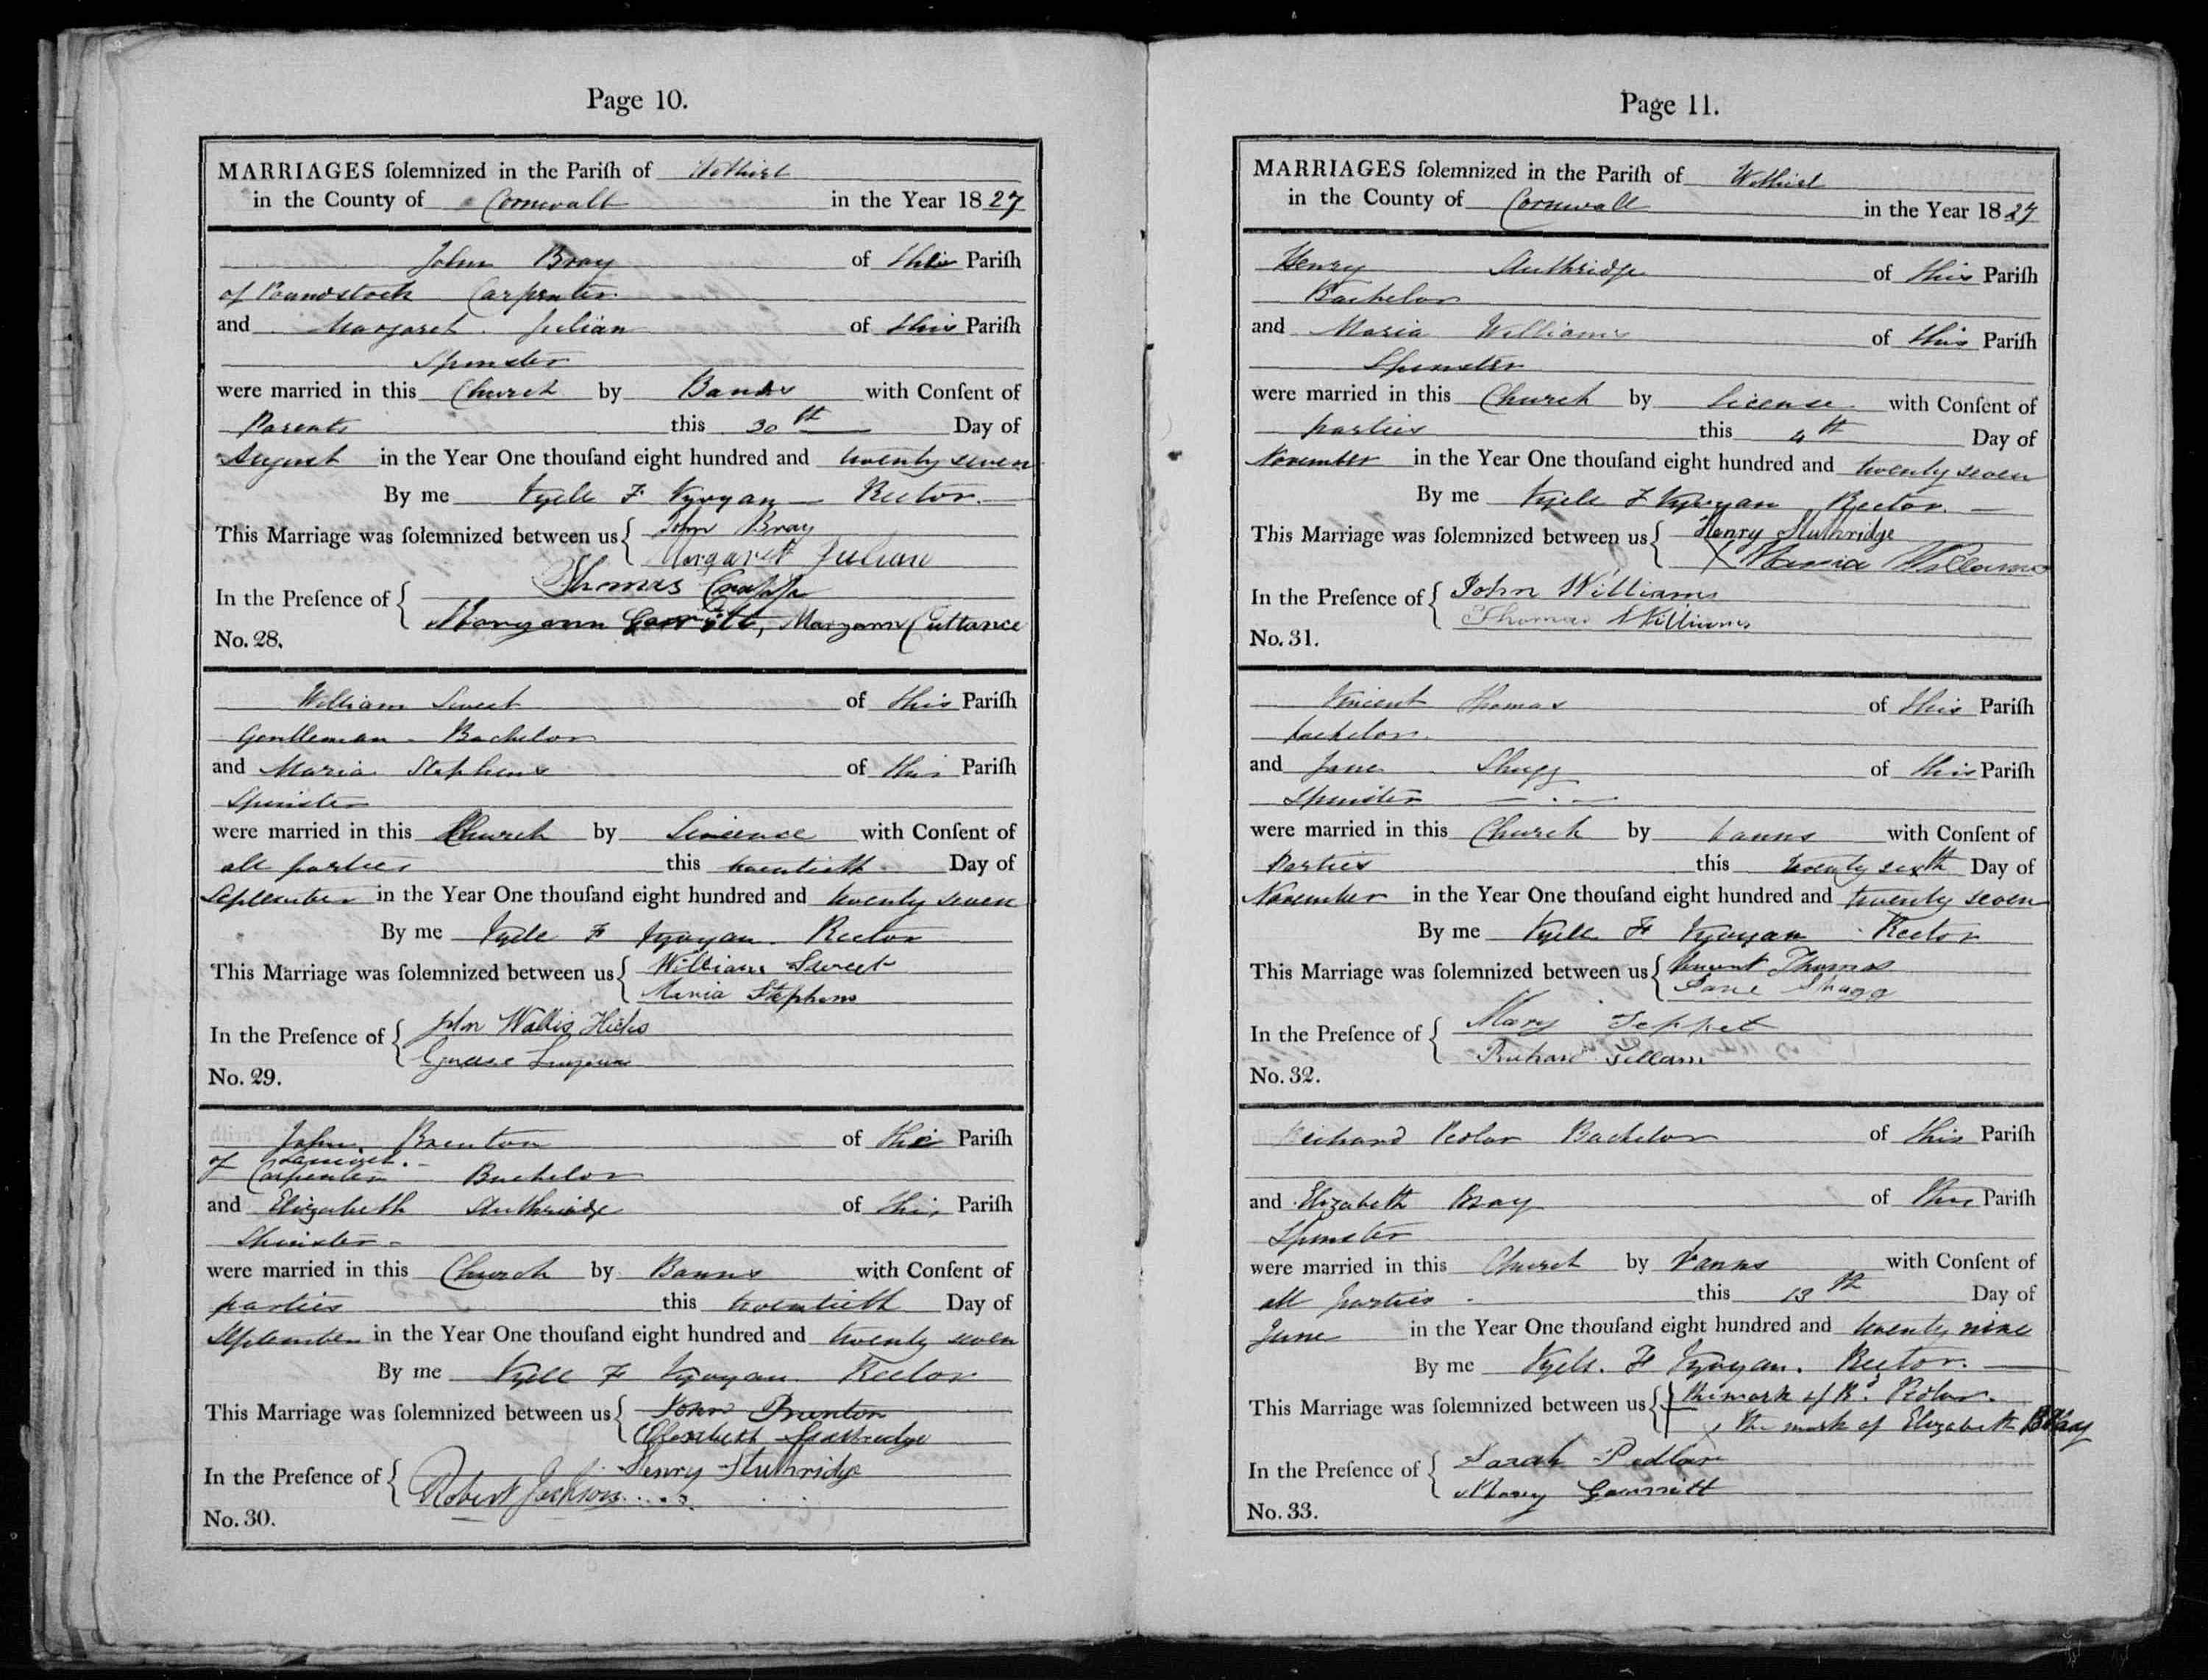 Page 10.
MARRIAGES ſolemnized in the Pariſh of Withiel
in the County of Cornwall in the Year 1827
John Bray of this Pariſh
of Poundstock Carpenter
and Margaret Julian of this Pariſh
Spinster
were married in this Church by Banns with Conſent of
Parents this 30th Day of
August in the Year One thouſand eight hundred and twenty seven
By me Vyell F Vyvyan Rector.
This Marriage was ſolemnized between us John Bray
Margaret Julian
In the Preſence of Thomas
Maryann Maryann Cuttance
No. 28.
William Sweet of this Pariſh
Gentleman - Bachelor
and Maria Stephens of this Pariſh
Spinster
were married in this Church by Lincence with Conſent of
all parties this twentieth Day of
September in the Year One thouſand eight hundred and twenty seven
By me Vyell F Vyvyan. Rector
This Marriage was ſolemnized between us William Sweet
Maria Stephens
In the Preſence of John Wallis Hicks
No. 29.
John Brenton of this Pariſh
of
Carpenter Bachelor
and Elizabeth Stuthridge of this Pariſh
Spinster -
were married in this Church by Banns with Conſent of
parties this twentieth Day of
September in the Year One thouſand eight hundred and twenty seven
By me Vyell F Vyvyan. Rector
This Marriage was ſolemnized between us John Brenton
In the Preſence of Henry Stuthridge
Robert Jackson
No. 30.
Page 11.
MARRIAGES ſolemnized in the Pariſh of Withiel
in the County of Cornwall in the Year 1827
Henry Stuthridge of this Pariſh
Bachelor
and Maria Williams of this Pariſh
Spinster
were married in this Church by License with Conſent of
parties this 4th Day of
November in the Year One thouſand eight hundred and twenty seven
By me Vyell F Vyvyan Rector.
This Marriage was ſolemnized between us Henry Stuthridge
X Maria Williams
In the Preſence of John Williams
Thomas Williams
No. 31.
Vincent Thomas of this Pariſh
bachelor.
and Jane Shugg of this Pariſh
Spinster
were married in this Church by banns with Conſent of
Parties this twenty sixth Day of
November in the Year One thouſand eight hundred and twenty seven
By me Vyell F Vyvyan Rector
This Marriage was ſolemnized between us Vincent Thomas
Jane Shugg
In the Preſence of Mary Teppet
Richard Gillam
No. 32.
Richard Pedlar Bachelor of this Pariſh
and Elizabeth Bray of this Pariſh
Spinster
were married in this Church by banns with Conſent of
all parties this 13th Day of
June in the Year One thouſand eight hundred and twenty nine
By me Vyell. F Vyvyan. Rector.
This Marriage was ſolemnized between us the mark of Rd. Pedlar.
x the mark of Elizabeth Bray
In the Preſence of Sarah Pedlar
Mary
No. 33.